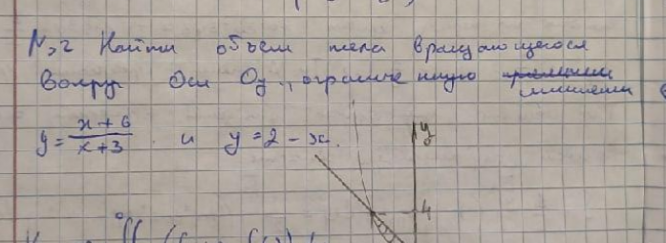 №2 Найти объем тела вращающегося
вокруг оси Oy, ограниченную линиями
y = (x+6)/(x+3) и y = 2 - x.
y
4